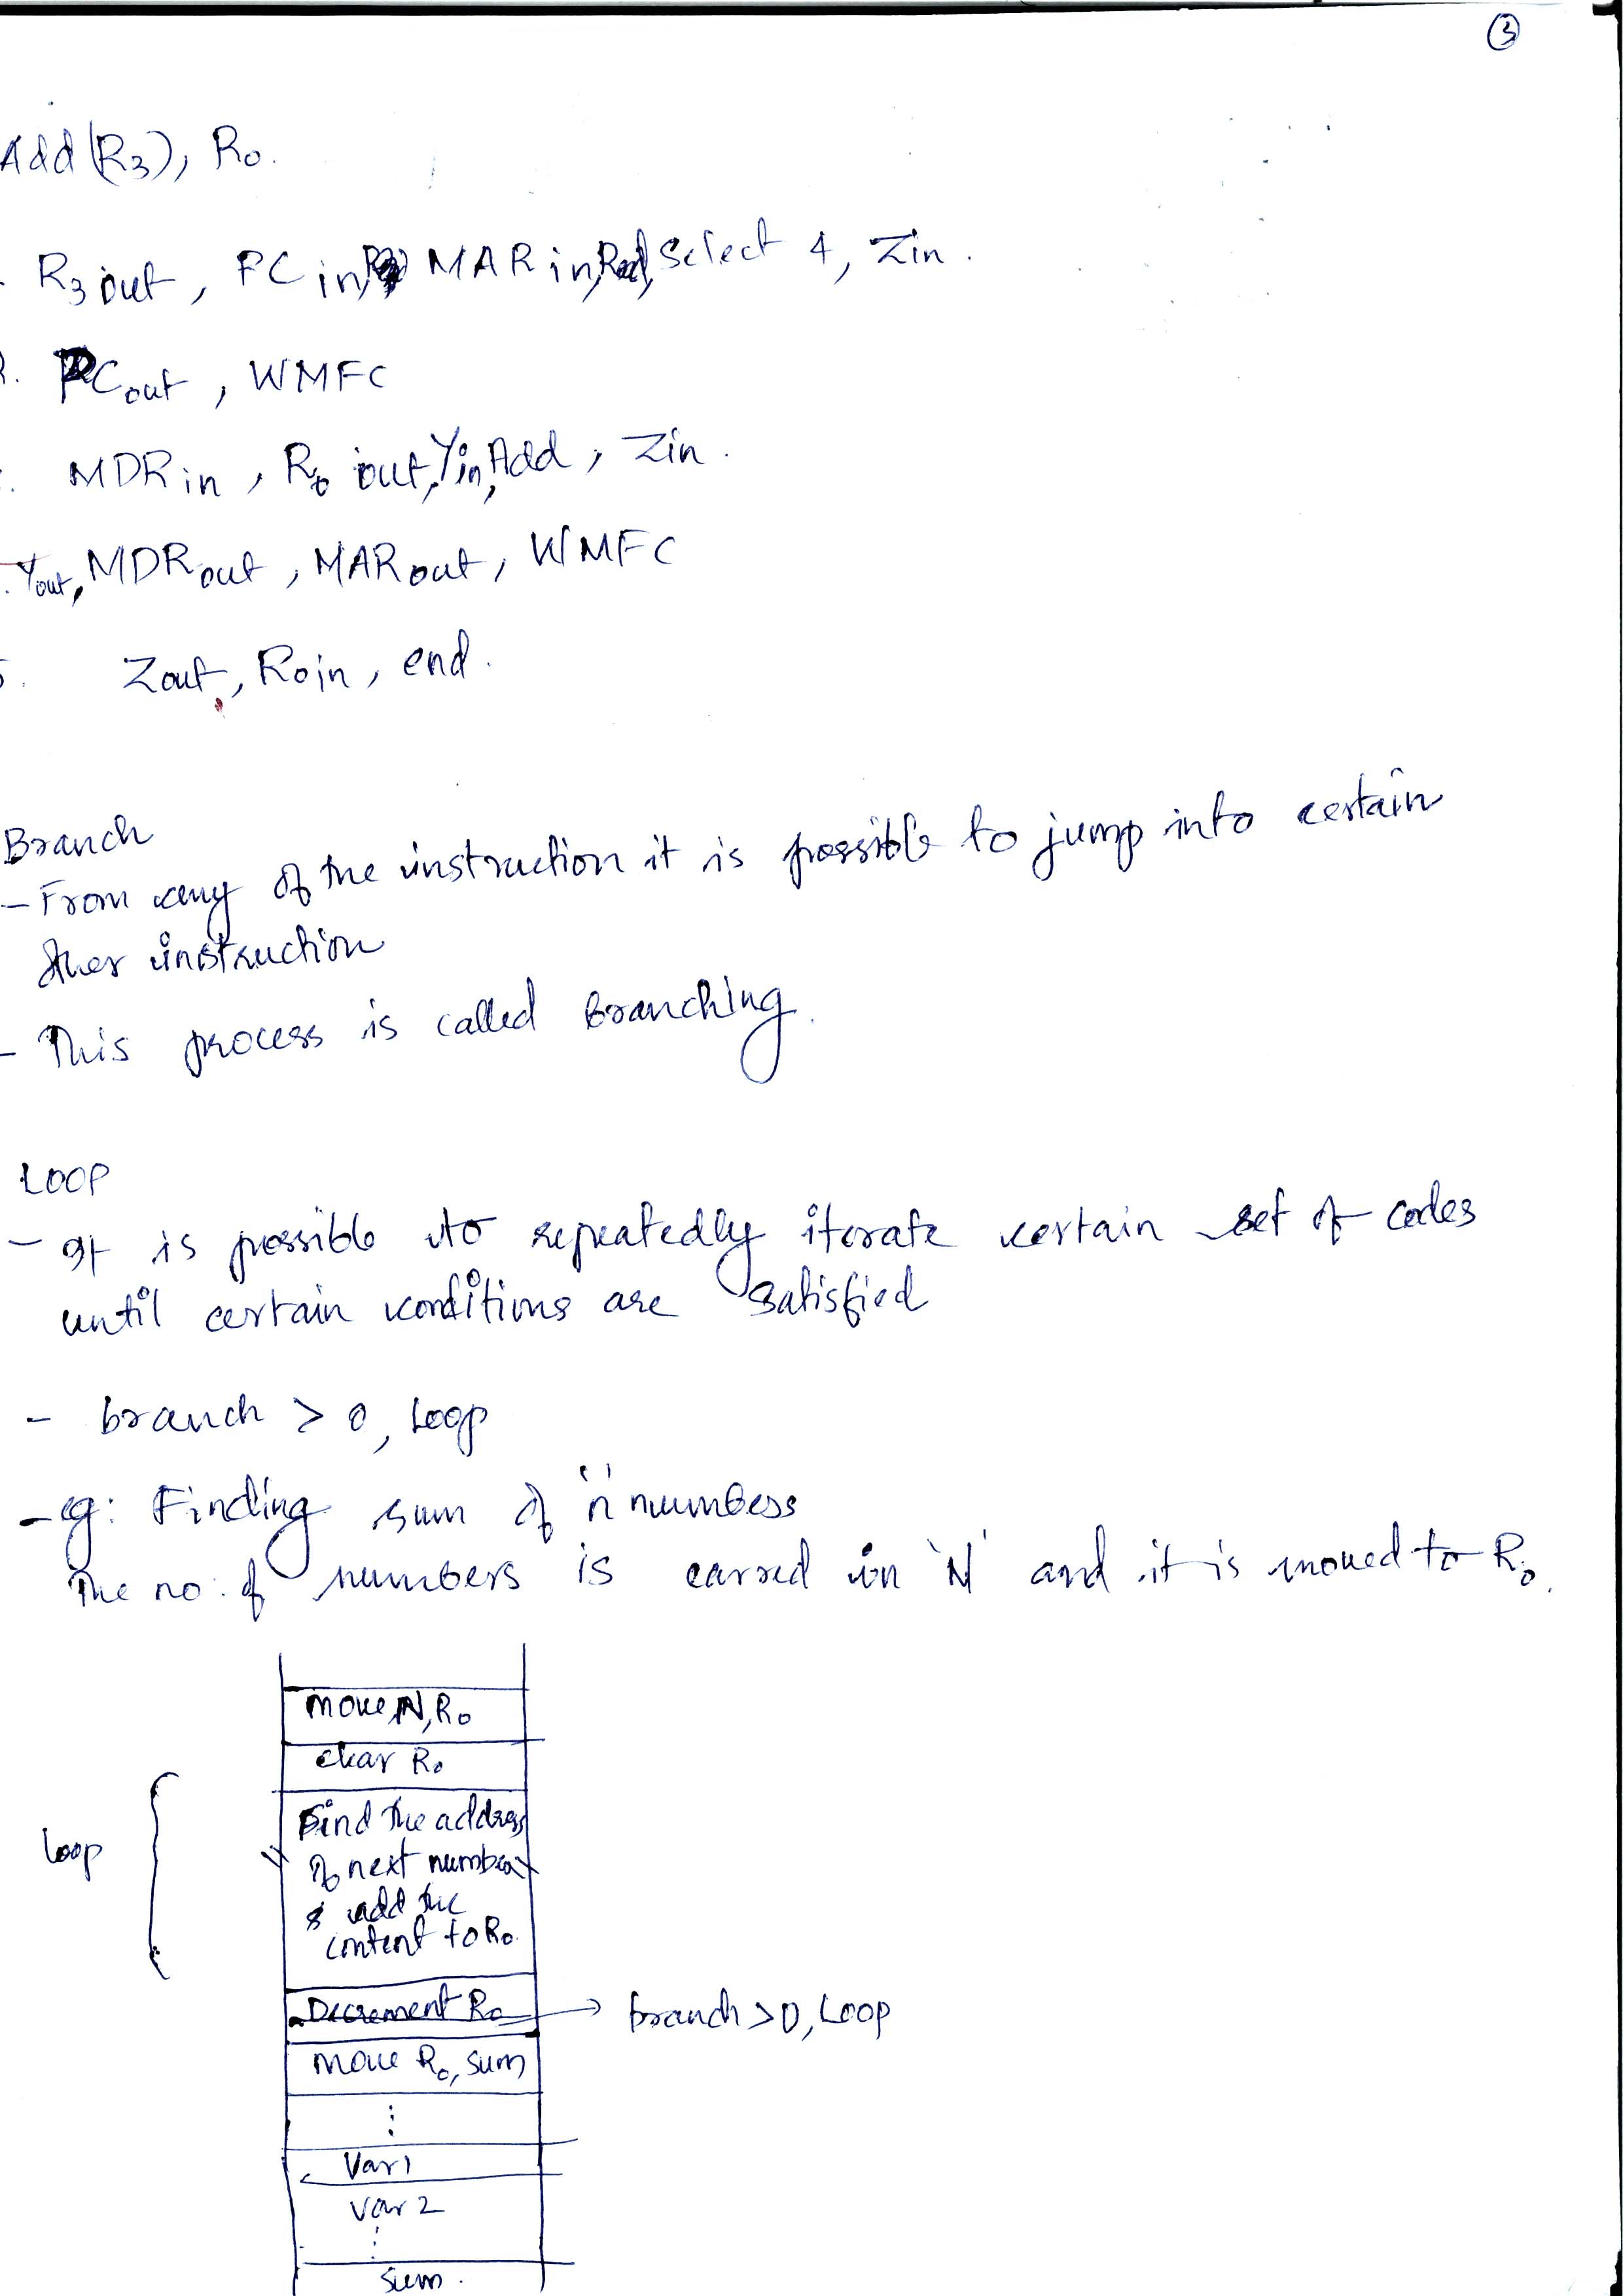 3
Add (R3), R0.
R3 out, PC in, MAR in, Read, Select 4, Zin.
PC out, WMFC
MDR in, R0 out, Yin, Add, Zin.
Yout, MDR out, MAR out, WMFC
5. Zout, R0in, end.
Branch
- From any of the instruction it is possible to jump into certain
other instruction
- This process is called Branching.
LOOP
- It is possible to repeatedly iterate certain set of codes
until certain conditions are satisfied
- branch > 0, Loop
- eg: Finding sum of 'n' numbers
The no: of numbers is carred in 'N' and it is moved to R0.
move N, R0
clear R0
Loop
Find the address
of next number
& add the
content to R0
Decrement R0 → branch > 0, Loop
move R0, sum
⋮
Var 1
Var 2
⋮
Sum.